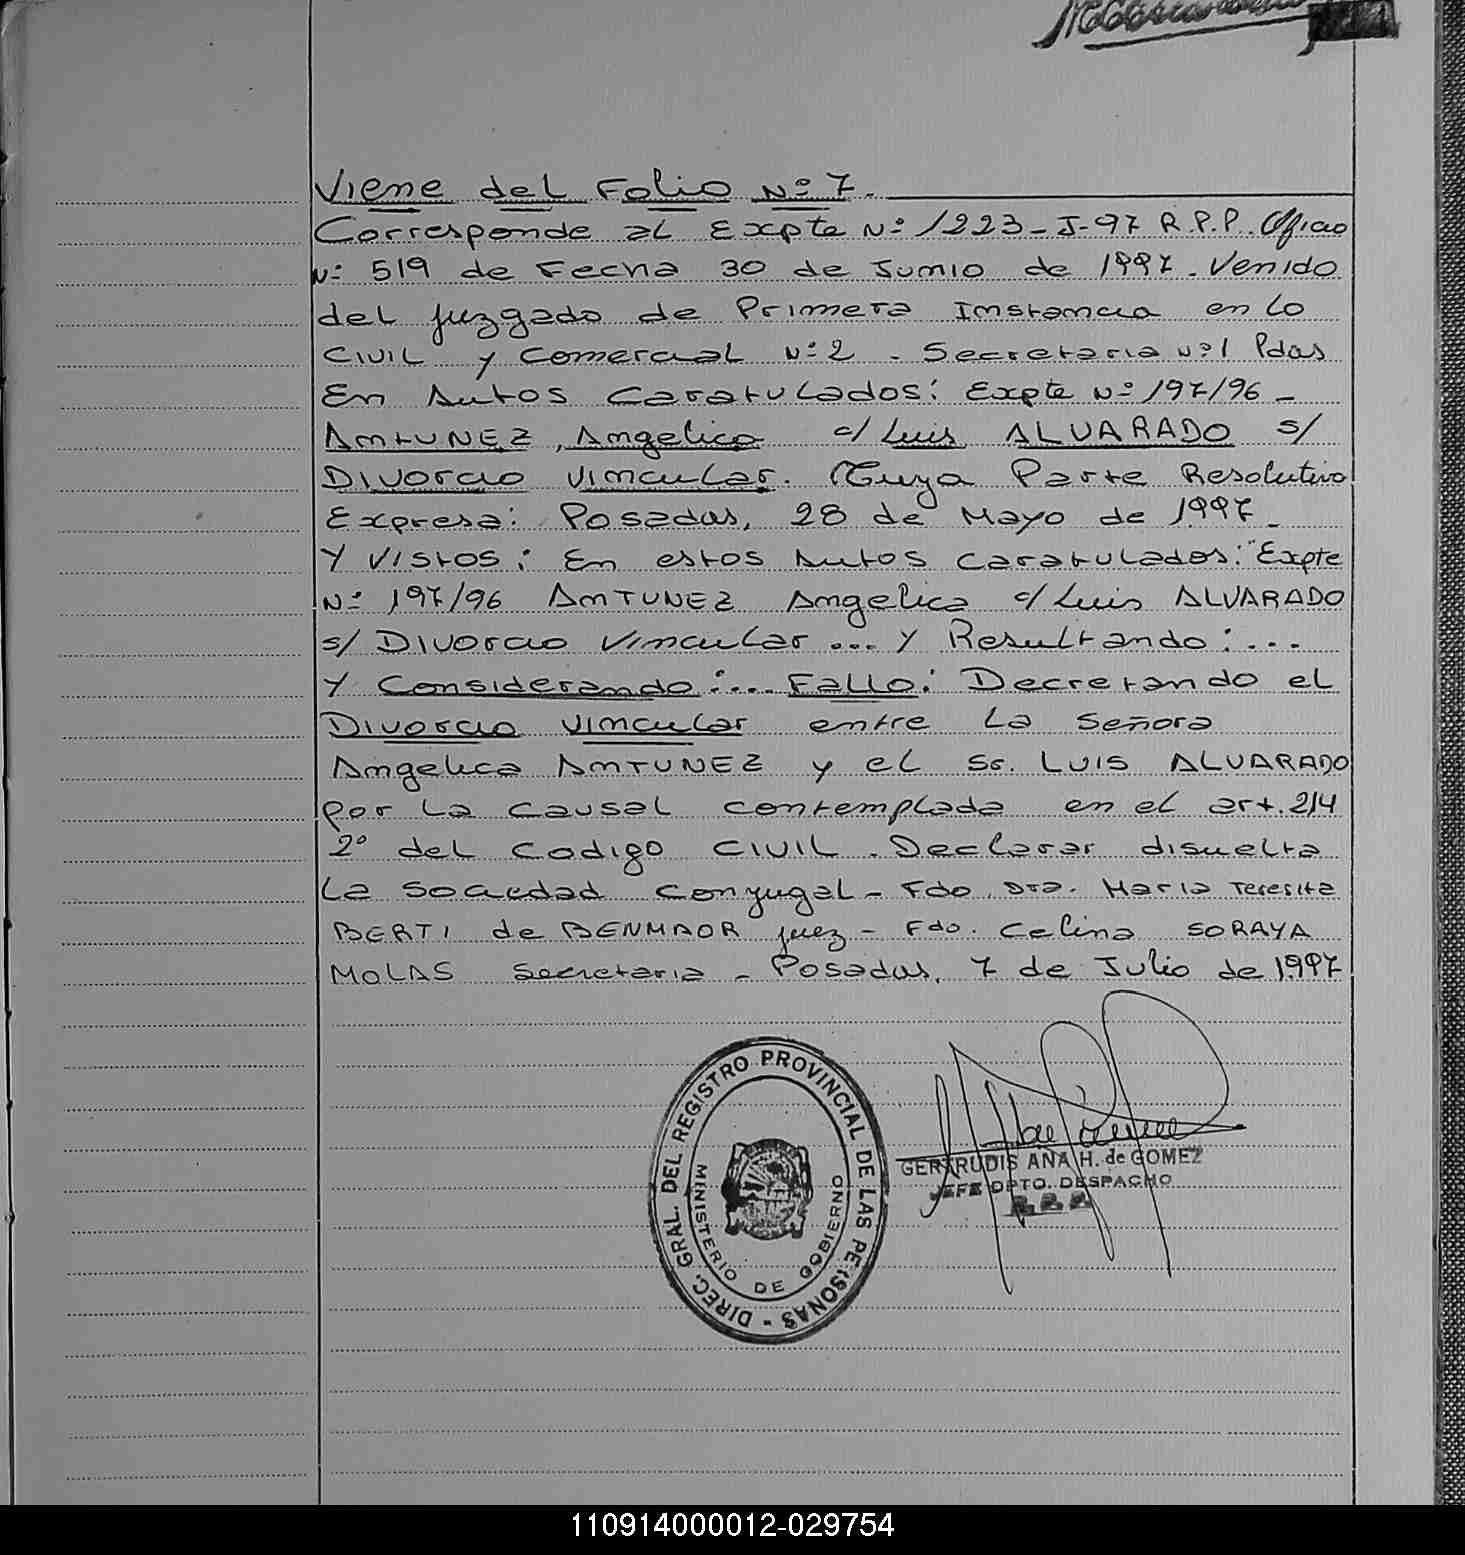 Viene del Folio Nº 7.
Corresponde al Expte Nº 1223-J-97 R.P.P. Oficio
Nº 519 de Fecha 30 de Junio de 1997. Venido
del Juzgado de Primera Instancia en lo
Civil y Comercial Nº 2 - Secretaria Nº 1 Pdas
En Autos Caratulados: Expte Nº 197/96 -
ANTUNEZ, Angelica c/ Luis ALVARADO s/
Divorcio Vincular. Cuya Parte Resolutiva
Expresa: Posadas, 28 de Mayo de 1997 -
Y Vistos: En estos Autos Caratulados: "Expte
Nº 197/96 ANTUNEZ Angelica c/ Luis ALVARADO
s/ Divorcio Vincular ... Y Resultando: ...
Y Considerando: ... Fallo: Decretando el
Divorcio Vincular entre La Señora
Angelica ANTUNEZ y el Sr. LUIS ALVARADO
por La causal contemplada en el art. 214
2º del Codigo CIVIL. Declarar disuelta
La Sociedad Conyugal - Fdo. Dra. Maria Teresita
BERTI de BENMAOR juez - Fdo. Celina SORAYA
MOLAS Secretaria - Posadas, 7 de Julio de 1997
DIREC. GRAL. DEL REGISTRO PROVINCIAL DE LAS PERSONAS -
MINISTERIO DE GOBIERNO
GERTRUDIS ANA H. de GOMEZ
JEFE DPTO. DESPACHO
110914000012-029754